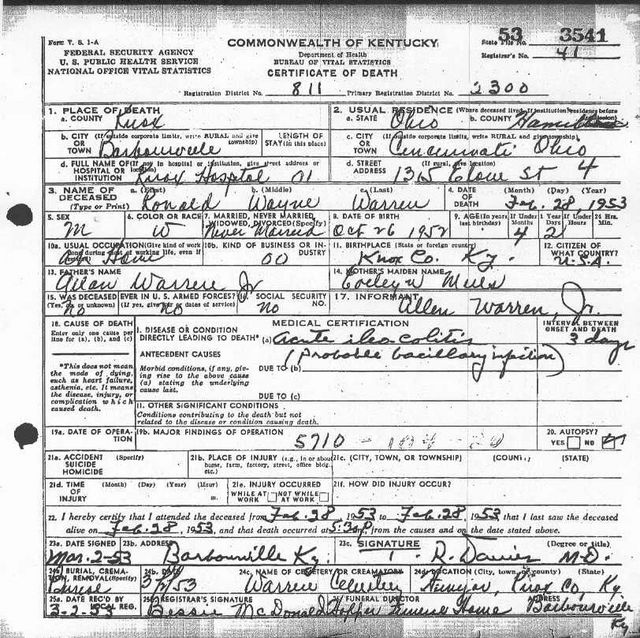 53 3541
Form V. S. 1-A
COMMONWEALTH OF KENTUCKY
State File No.
FEDERAL SECURITY AGENCY
Department of Health
Registrar's No. 41
U. S. PUBLIC HEALTH SERVICE
BUREAU OF VITAL STATISTICS
NATIONAL OFFICE VITAL STATISTICS
CERTIFICATE OF DEATH
Registration District No. 811 Primary Registration District No. 2300
1. PLACE OF DEATH
a. COUNTY Knox
2. USUAL RESIDENCE (Where deceased lived. If institution: residence before
a. STATE Ohio b. COUNTY
b. CITY (If outside corporate limits, write RURAL and give township) Barbourville
LENGTH OF STAY (in this place)
c. CITY (If outside corporate limits, write RURAL and give township)
OR TOWN Cincinnati Ohio
d. FULL NAME OF (If not in hospital or institution, give street address or location)
HOSPITAL OR INSTITUTION Knox Hospital 01
d. STREET ADDRESS (If rural, give location) 1315 St 4
3. NAME OF DECEASED (Type or Print)
a. (First) b. (Middle) c. (Last)
Ronald Wayne Warren
4. DATE OF DEATH (Month) (Day) (Year)
Feb. 28, 1953
5. SEX M
6. COLOR OR RACE W
7. MARRIED, NEVER MARRIED, WIDOWED, DIVORCED (Specify) Never Married
8. DATE OF BIRTH Oct 26 1952
9. AGE (In years last birthday) If Under 1 Year Months 4 Days 2 If Under 24 Hrs. Hours Min.
10a. USUAL OCCUPATION (Give kind of work done during most of working life, even if retired) At Home
10b. KIND OF BUSINESS OR INDUSTRY 00
11. BIRTHPLACE (State or foreign country) Knox Co. Ky.
12. CITIZEN OF WHAT COUNTRY? U.S.A.
13. FATHER'S NAME Warren Jr
14. MOTHER'S MAIDEN NAME
15. WAS DECEASED EVER IN U. S. ARMED FORCES? (Yes, no or unknown) (If yes, give war or dates of service) No No
16. SOCIAL SECURITY NO. No
17. INFORMANT Allen Warren, Jr.
18. CAUSE OF DEATH
MEDICAL CERTIFICATION
INTERVAL BETWEEN ONSET AND DEATH
Enter only one cause per line for (a), (b), and (c)
I. DISEASE OR CONDITION DIRECTLY LEADING TO DEATH* (a) acute ileocolitis 3 days
ANTECEDENT CAUSES (probable bacillary infection)
*This does not mean the mode of dying, such as heart failure, asthenia, etc. It means the disease, injury, or complication which caused death.
Morbid conditions, if any, giving rise to the above cause (a) stating the underlying cause last.
DUE TO (b)
DUE TO (c)
II. OTHER SIGNIFICANT CONDITIONS
Conditions contributing to the death but not related to the disease or condition causing death.
19a. DATE OF OPERATION
19b. MAJOR FINDINGS OF OPERATION 5710
20. AUTOPSY? YES NO
21a. ACCIDENT SUICIDE HOMICIDE (Specify)
21b. PLACE OF INJURY (e.g., in or about home, farm, factory, street, office bldg., etc.)
21c. (CITY, TOWN, OR TOWNSHIP) (COUNTY) (STATE)
21d. TIME OF INJURY (Month) (Day) (Year) (Hour)
21e. INJURY OCCURRED WHILE AT WORK NOT WHILE AT WORK
21f. HOW DID INJURY OCCUR?
22. I hereby certify that I attended the deceased from Feb. 28, 1953, to Feb. 28, 1953, that I last saw the deceased
alive on Feb. 28, 1953, and that death occurred at 5:30 P, from the causes and on the date stated above.
23a. DATE SIGNED Mar. 2-53
23b. ADDRESS Barbourville Ky.
23c. SIGNATURE T. R. Davies (Degree or title) M.D.
24a. BURIAL, CREMATION, REMOVAL (Specify) Burial
24b. DATE 53
24c. NAME OF CEMETERY OR CREMATORY Warren Cemetery
24d. LOCATION (City, town, or county) (State) Knox Co, Ky.
25a. DATE REC'D BY LOCAL REG. 3-2-53
25b. REGISTRAR'S SIGNATURE Bessie McDonald
26. FUNERAL DIRECTOR Hopper Funeral Home
ADDRESS Barbourville Ky